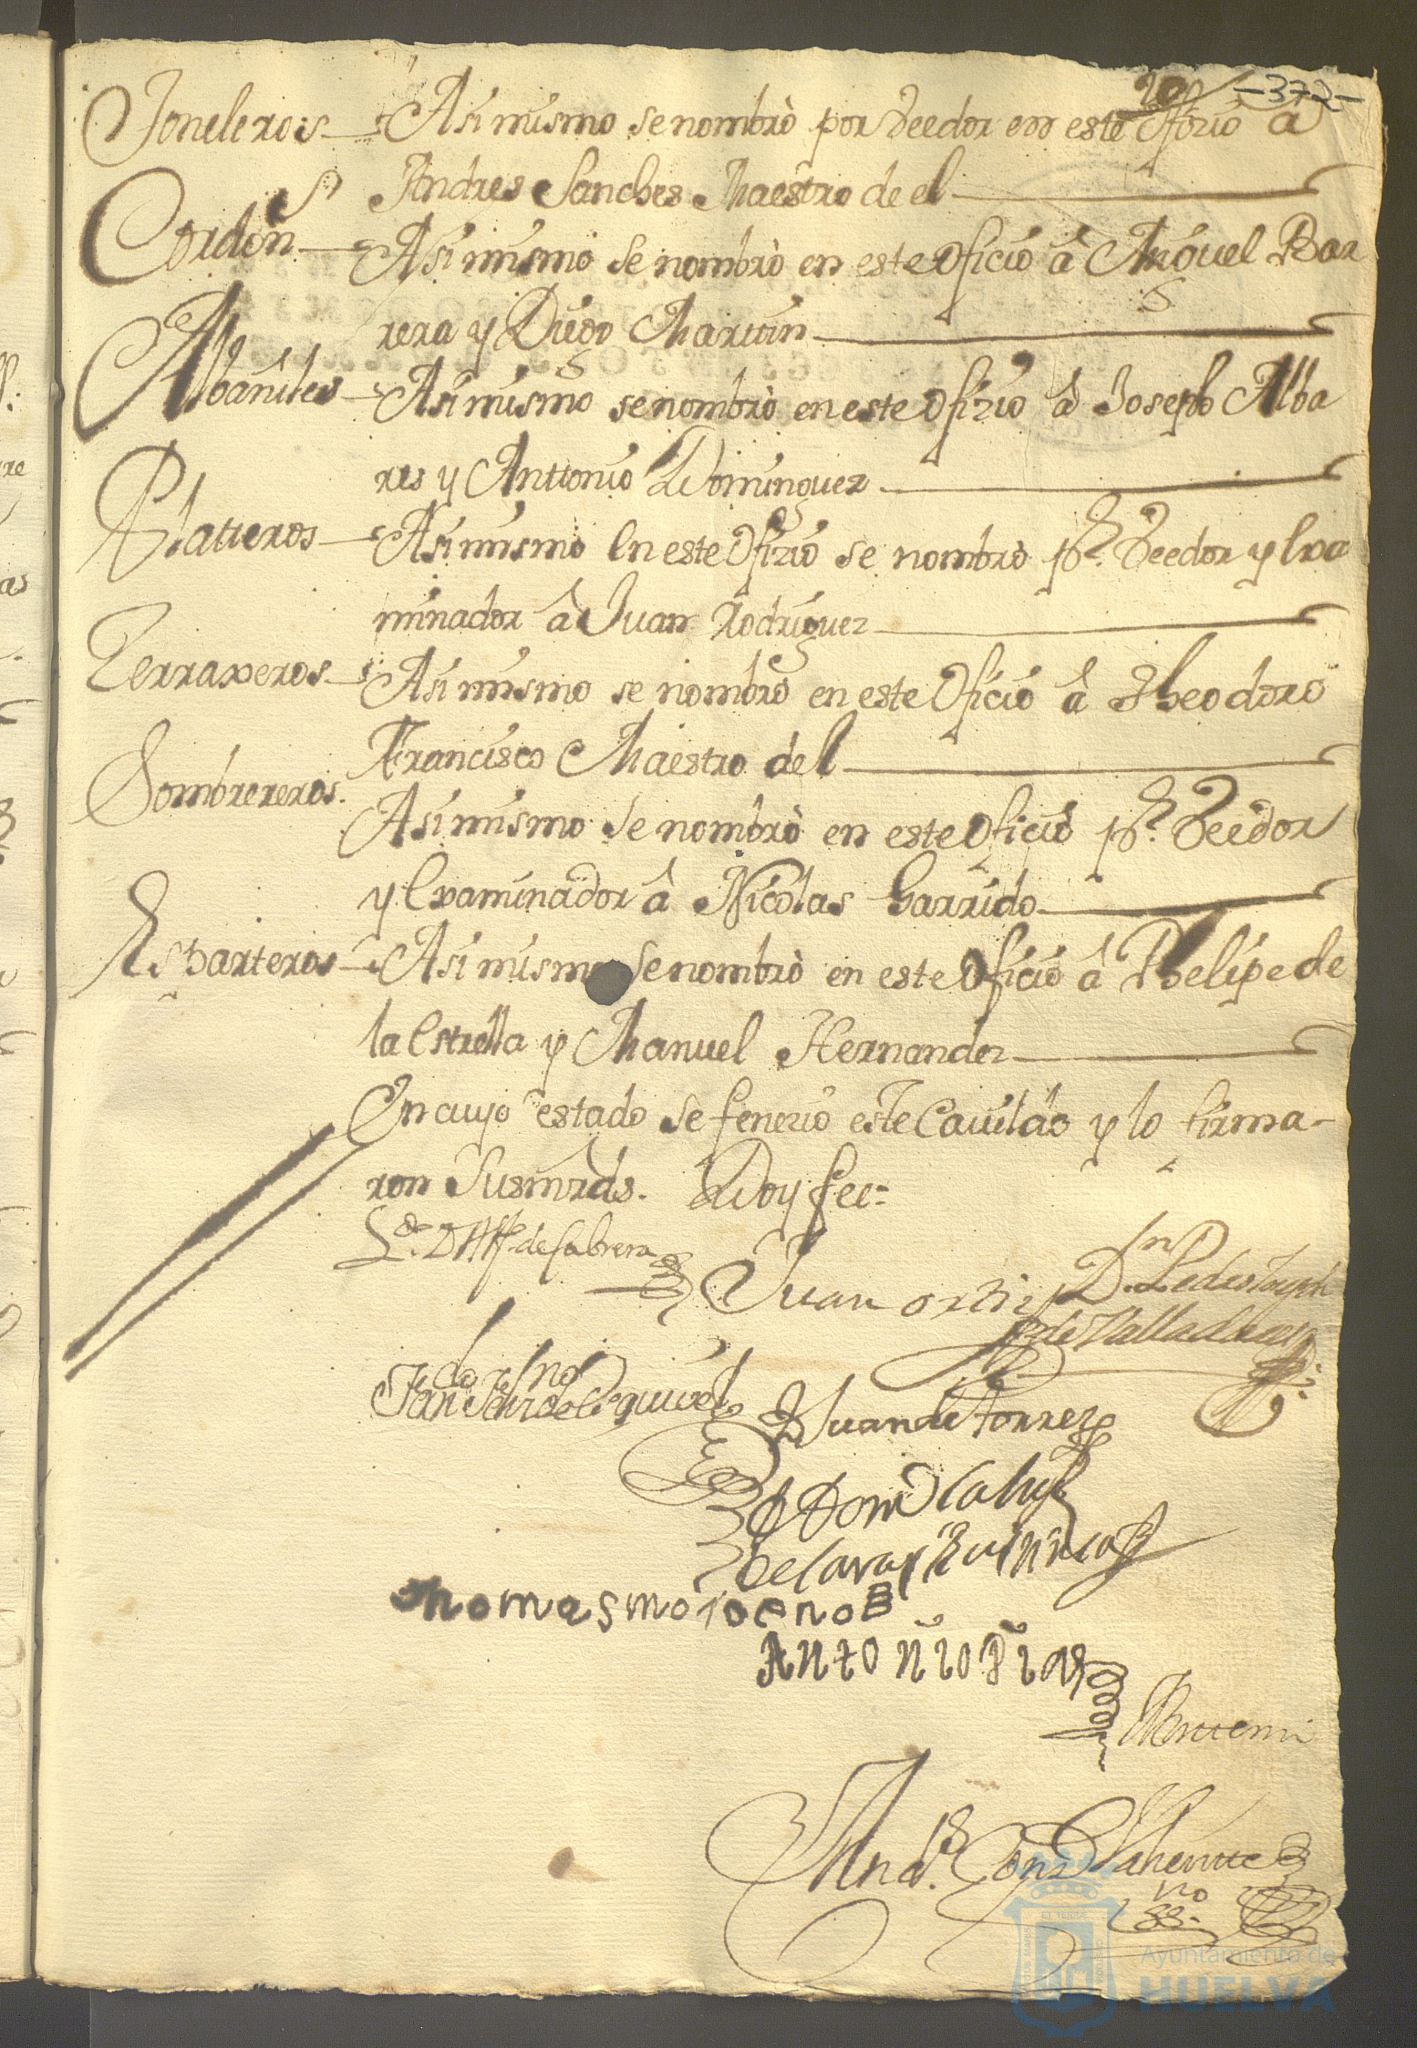 20 -372-
Toneleros - Asimismo se nombrò por Veedor en este Ofizio â
Andres Sanches Maestro de el
Cordon^s - Asimismo Se nombrò en este Oficio â Miguel Bar
rera y Diego Martin
Albañiles - Asimismo se nombrò en este Ofizio â Joseph Alba
res y Anttonio Dominguez
Platteros - Asimismo En este Ofizio se nombrò p.^r Veedor y Exa
minador â Juan Rodriguez
Zerraxeros - Asimismo se nombrò en este Oficio â Theodoro
Francisco Maestro del
Sombrereros. Asimismo Se nombrò en este Oficio p.^r Veedor
y Examinador â Nicolas Garrido
Esparteros - Asimismo Se nombrò en este Oficio â Phelipe de
la Estrella y Manuel Hernandez
En cuyo estado se fenezio este Cavildo y lo firma-
ron Susmrds. Doy fee=
L.^do D. Alf. de Cabrera
Juan ortiz D.^n Pedro Joseph
de Valladares
Fran^co de Esquivel
Juan de Torrez
Dom^o
Thomas moreno
Antoñio Dias
Antemi
And.^s Gonz Valiente
ss^no
Ayuntamiento de
HUELVA